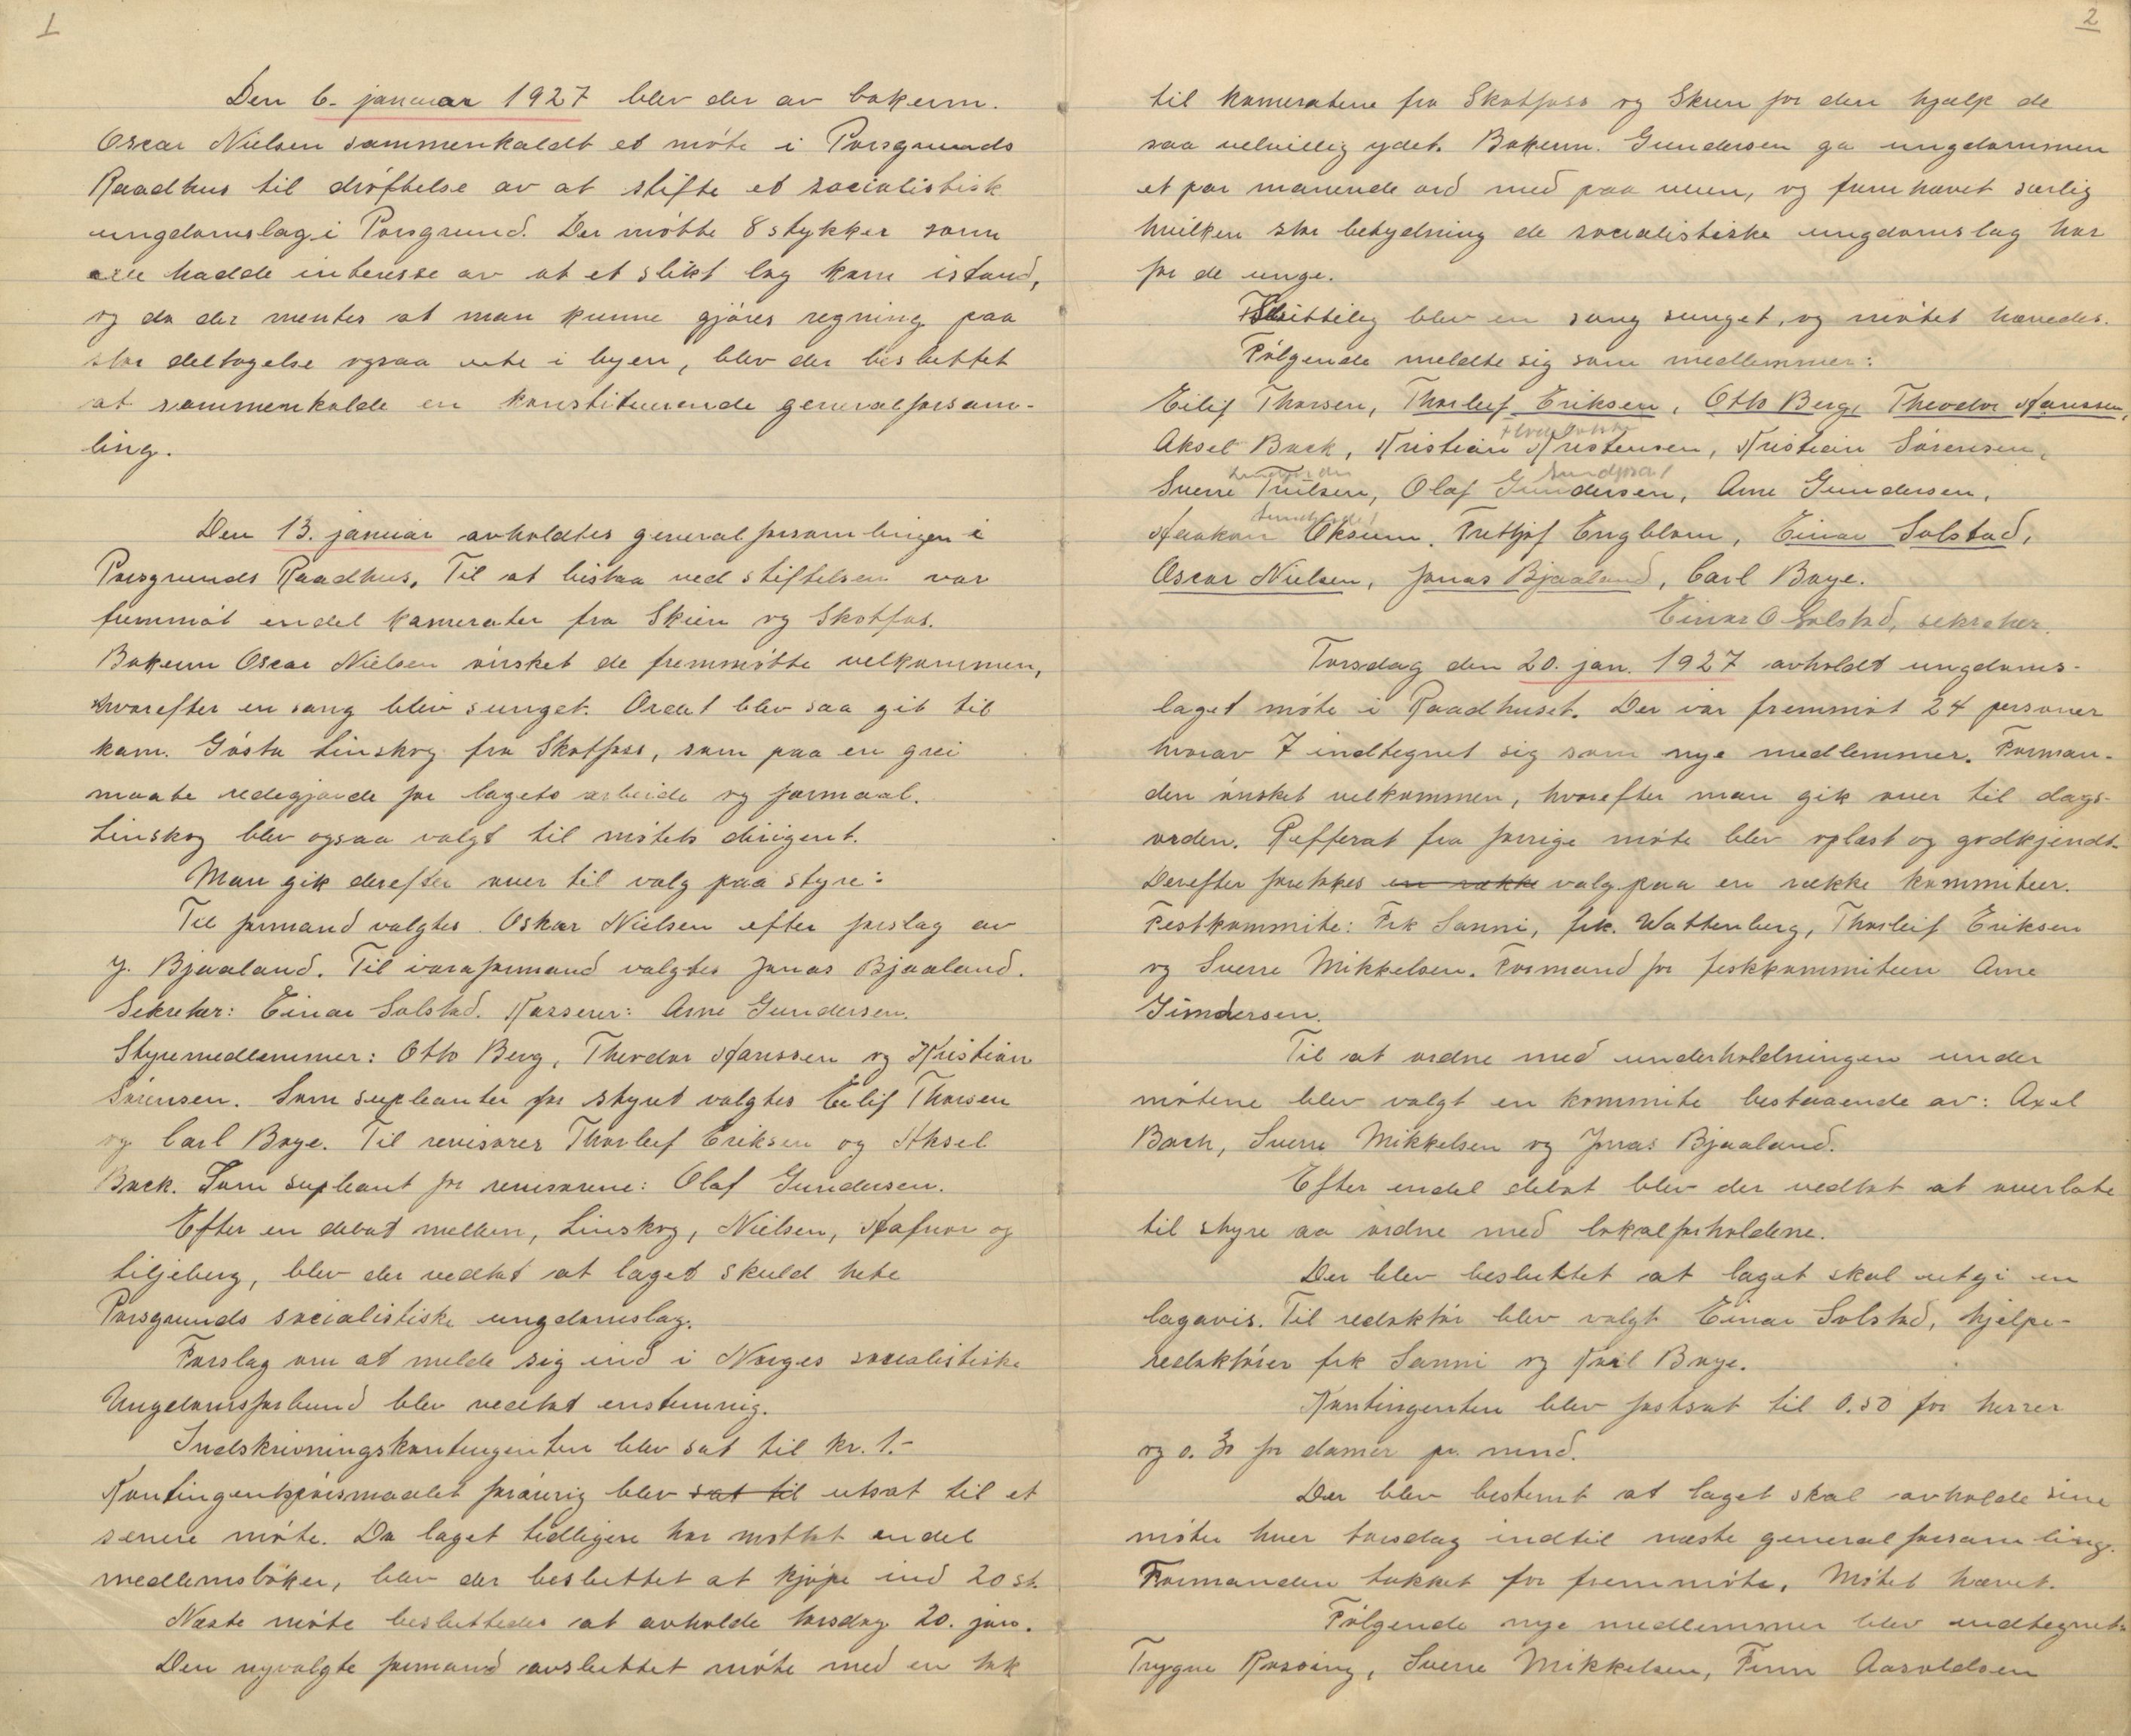 1
Den 6. januar 1927 blev der av bokerm.
Oscar Nielsen sammenkaldt et møte i Porsgrunds
Raadhus til drøftelse av at stifte et socialistisk
ungdomslag i Porsgrund. Der møtte 8 stykker som
alle hadde interesse av at et slikt lag kom istand,
og da der mentes at man kunne gjøres regning paa
stor deltagelse ogsaa ute i byen, blev der besluttet
at sammenkalde en konstituerende generalforsam-
ling.
Den 13. januar avholdtes generalforsamlingen i
Porsgrunds Raadhus. Til at bistaa ved stiftelsen var
fremmøt endel kamerater fra Skien og Skotfos.
Bokerm Oscar Nielsen ønsket de fremmøtte velkommen,
hvorefter en sang blev sunget. Ordet blev saa git til
kam. Gösta Linskog fra Skotfoss, som paa en grei
maate redegjorde for lagets arbeide og formaal.
Linskog blev ogsaa valgt til møtets dirigent.
Man gik derefter over til valg paa styre:
Til formand valgtes Oskar Nielsen efter forslag av
J. Bjaaland. Til varaformand valgtes Jonas Bjaaland.
Sekretær: Einar Solstad. Kasserer: Arne Gundersen.
Styremedlemmer: Otto Berg, Theodor Hanssen og Kristian
Sørensen. Som supleanter for styret valgtes Eilif Thorsen
og Carl Boye. Til revisorer Thorleif Eriksen og Aksel
Back. Som supleant for revisorene: Olaf Gundersen.
Efter en debat mellem, Linskog, Nielsen, Hafnor og
Liljeberg, blev der vedtat at laget skuld hete
Porsgrunds socialistiske ungdomslag.
Forslag om at melde sig ind i Norges socialistiske
Ungdomsforbund blev vedtat enstemmig.
Indskrivningskontingenten blev sat til kr. 1.-
Kontingentspørsmaalet forøvrig blev sat til utsat til et
senere møte. Da laget tidligere har mottat endel
medlemsbøker, blev der besluttet at kjøpe ind 20 st.
Næste møte besluttedes at avholde torsdag 20. jan.
Den nyvalgte formand avsluttet møte med en tak
2
til kameratene fra Skotfoss og Skien for den hjælp de
saa velvillig ydet. Bokerm. Gundersen ga ungdommen
et par manende ord med paa veien, og fremhævet særlig
hvilken stor betydning de socialistiske ungdomslag har
for de unge.
Tilslut blev en sang sunget, og møtet hævedes.
Følgende meldte sig som medlemmer:
Eilif Thorsen, Thorleif Eriksen, Otto Berg, Theodor Hanssen,
Aksel Back, Kristian Kristensen, Kristian Sørensen,
Sverre Trulsen, Olaf Gundersen, Arne Gundersen,
Haakon Oksum, Fritjof Engblom, Einar Solstad,
Oscar Nielsen, Jonas Bjaaland, Carl Boye.
Einar O Solstad, sekretær.
Torsdag den 20. jan. 1927 avholdt ungdoms-
laget møte i Raadhuset. Der var fremmøt 24 personer
hvorav 7 indtegnet sig som nye medlemmer. Forman-
den ønsket velkommen, hvorefter man gik over til dags-
orden. Refferat fra forrige møte blev oplæst og godkjendt.
Derefter foretokes en række valg paa en række kommiteer.
Festkommite: Frk Sanni, frk. Wattenberg, Thorleif Eriksen
og Sverre Mikkelsen. Formand for festkommiteen Arne
Gundersen.
Til at ordne med underholdningen under
møtene blev valgt en kommite bestaaende av: Axel
Back, Sverre Mikkelsen og Jonas Bjaaland.
Efter endel debat blev der vedtat at overlate
til styre aa ordne med lokalforholdene.
Der blev besluttet at laget skal utgi en
lagavis. Til redaktør blev valgt Einar Solstad, hjelpe-
redaktører frk Sanni og Karl Boye.
Kontingenten blev fastsat til 0.50 for herrer
og 0.30 for damer pr. mnd.
Der blev bestemt at laget skal avholde sine
møter hver torsdag indtil næste generalforsamling.
Formanden takket for fremmøte. Møtet hævet.
Følgende nye medlemmer blev indtegnet:
Trygve Rossing, Sverre Mikkelsen, Finn Aasoldsen